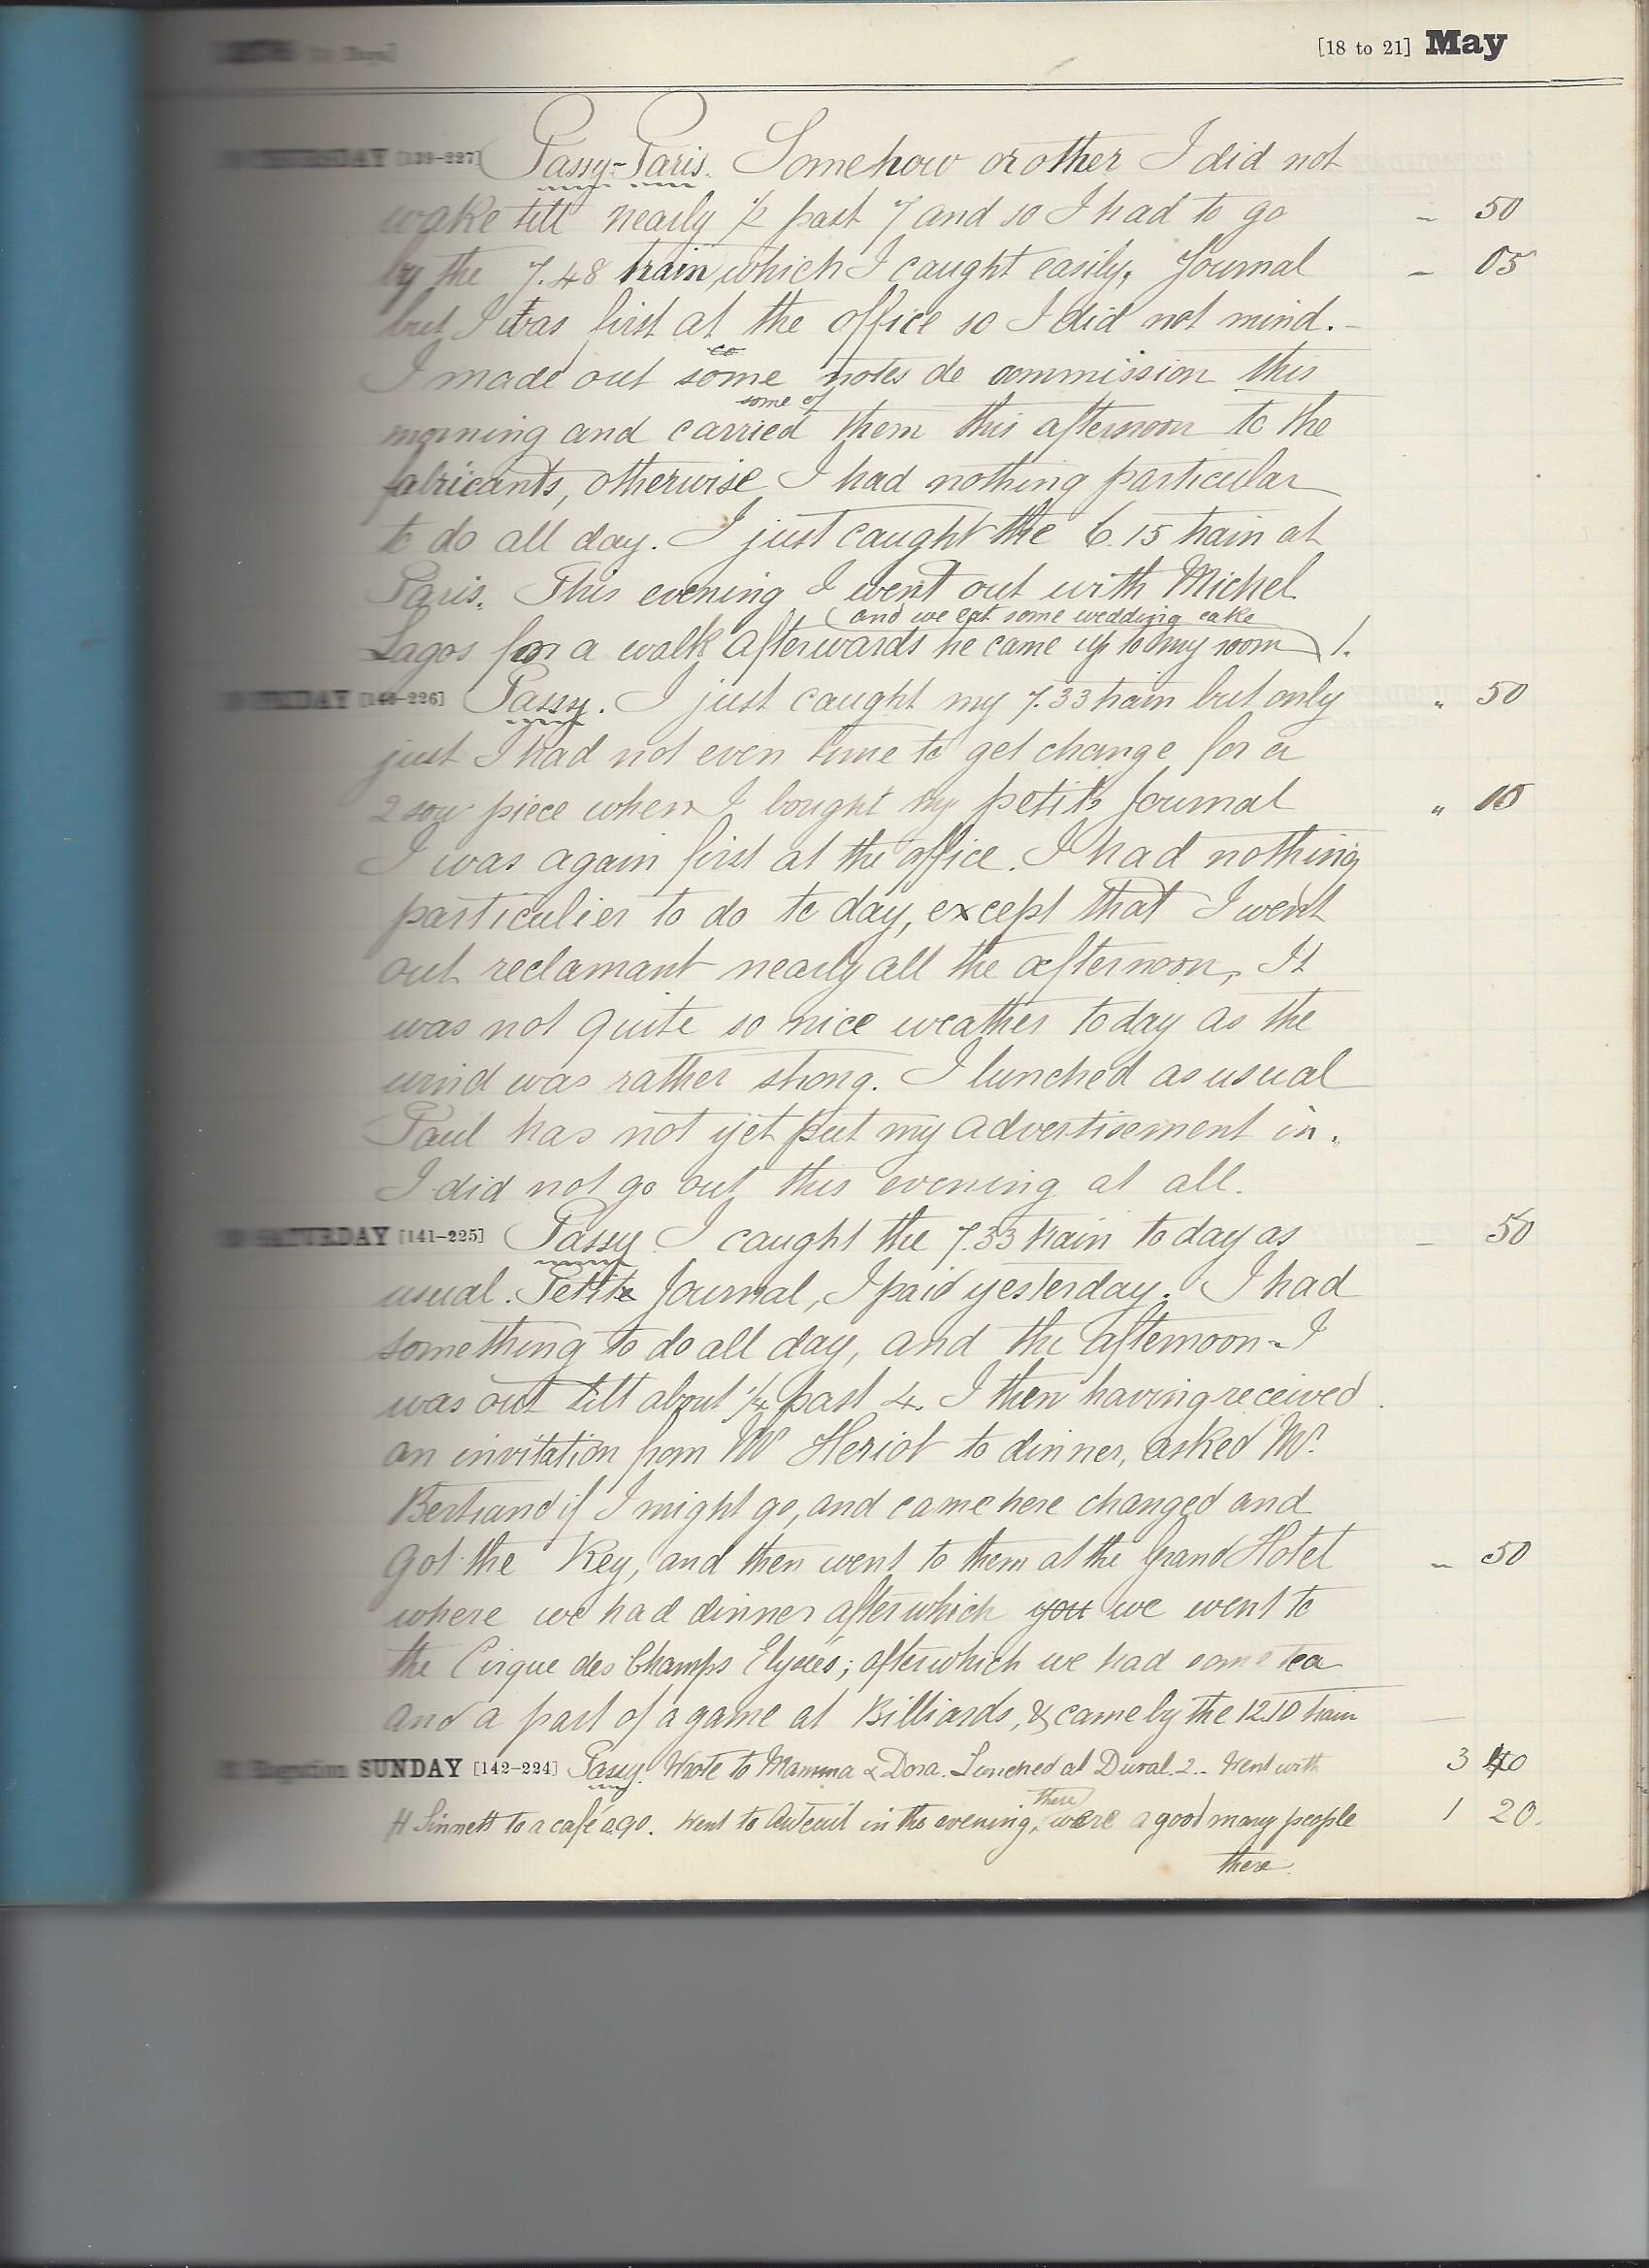 [18 to 21] May
THURSDAY [139-227] Passy-Paris. Somehow or other I did not
wake till nearly ½ past 7 and so I had to go – 50
by the 7.48 train, which I caught easily, Journal – 05
but I was first at the office so I did not mind.–
I made out some notes de commission this
some of
morning and carried them this afternoon to the
fabricants, otherwise I had nothing particular
to do all day. I just caught the 6.15 train at
Paris. This evening I went out with Michel
(and we eat some wedding cake
Lagos for a walk afterwards he came up to my room) 1.
FRIDAY [140-226] Passy. I just caught my 7.33 train but only " 50
just I had not even time to get change for a
2 sou piece when I bought my petit Journal " 10
I was again first at the office. I had nothing
particulier to do to day, except that I went
out reclamant nearly all the afternoon, It
was not quite so nice weather today as the
wind was rather strong. I lunched as usual
Paul has not yet put my advertisement in.
I did not go out this evening at all.
SATURDAY [141-225] Passy I caught the 7.33 train today as – 50
usual. Petit Journal, I paid yesterday. I had
something to do all day, and the afternoon - I
was out till about ¼ past 4. I then having received
an invitation from Mr Heriot to dinner, asked Mr.
Bertrand if I might go, and came here changed and
got the Key, and then went to them at the Grand Hotel – 50
where we had dinner after which you we went to
the Cirque des Champs Elysées; after which we had some tea
and a part of a game at Billiards, & came by the 12.10 train
Rogation SUNDAY [142-224] Passy. Wrote to Mamma & Dora. Lunched at Duval. 2.– Went with 3 40
there
H Sinnett to a café 0.90. Went to Auteuil in the evening, were a good many people 1 20.
there.